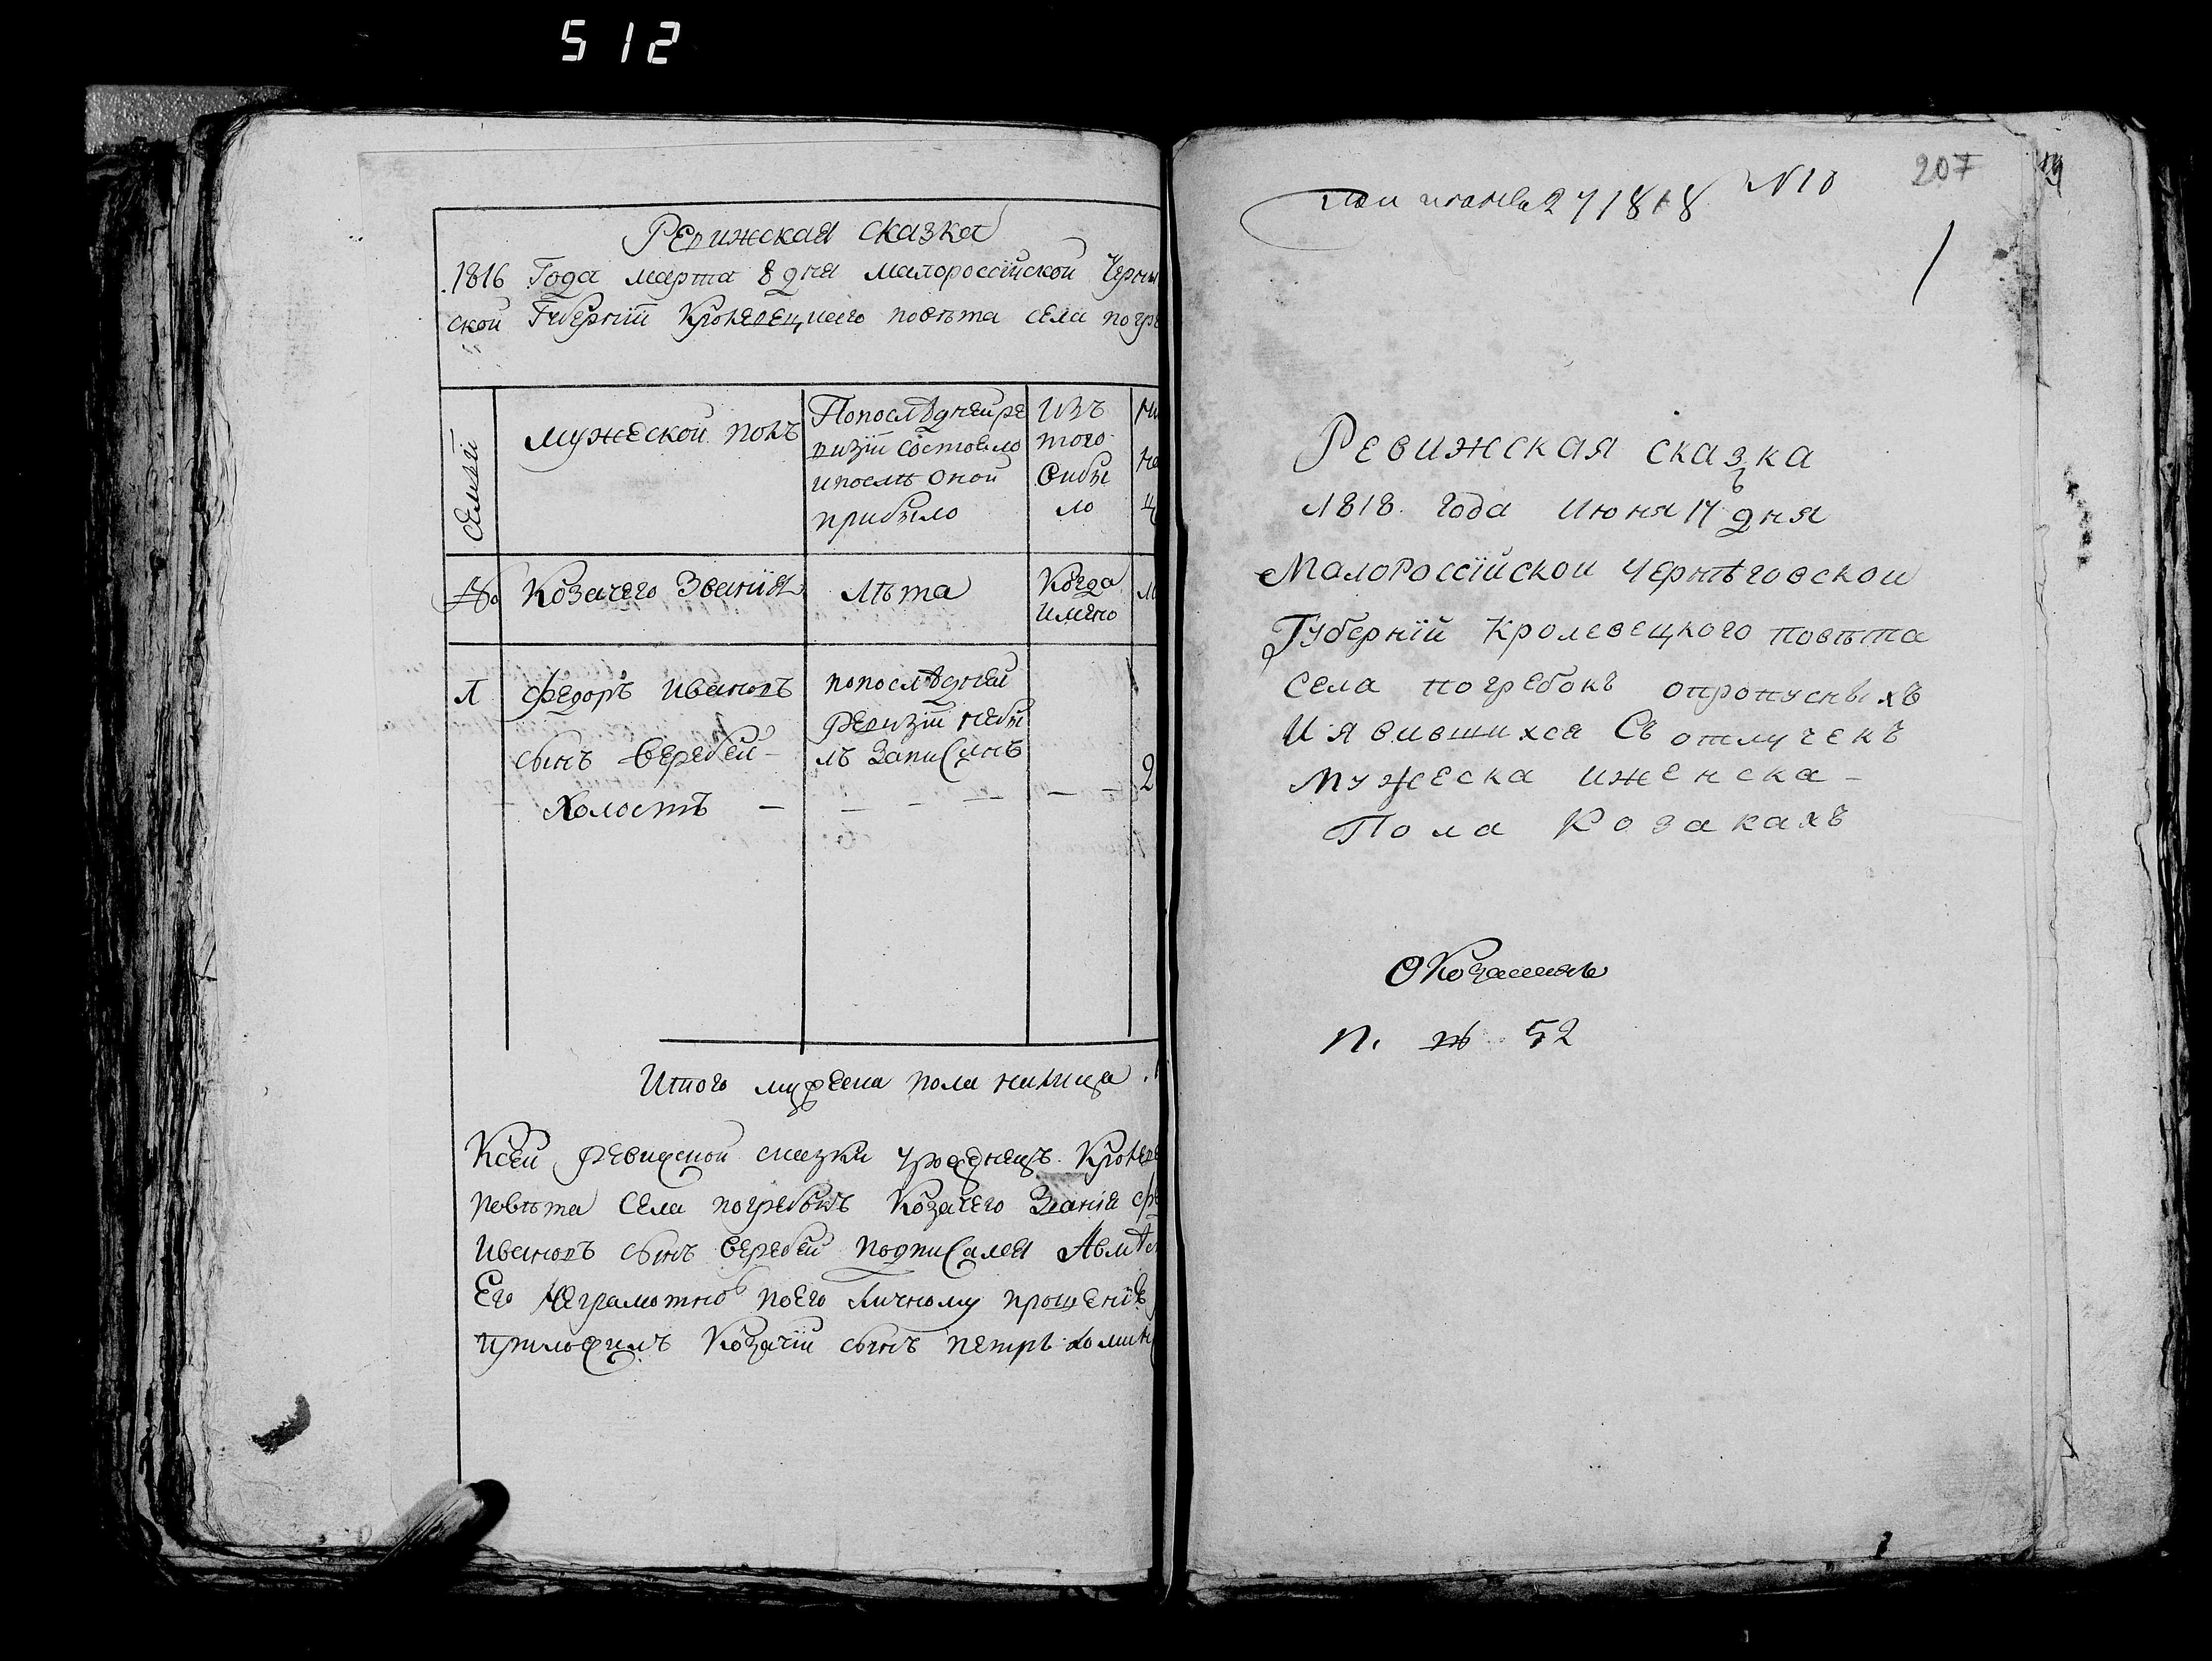 512
Ревижская сказка
1816 Года марта 8 дня малороссїйской Черни
ской Губернїй Кролевецкаго повѣта села погре
Семьей
мужеской полъ
Попослѣдней ре
визїи состояло
ипослѣ оной
прибыло
Изъ
того
выбы
ло
№
Козачего Званїя
лѣта
Когда
имено
1
Федоръ Ивановъ
сынъ Веребей
Холостъ — — — — — —
попослѣдней
Ревизїи небы
лъ записанъ
2
Итого мужеска пола налицо 1
Ксей ревижской сказки урожденецъ Кролеве
повѣта Села погребокъ Козачего Званїя Фе
Ивановъ сынъ Веребей подписался Авмѣс
Его Неграмотно поего Личному прошенїю
приложилъ Козачїй сынъ петръ
N10
207
1818
Ревижская сказка
1818 года Июня 17 дня
Малороссїйской Чернѣговской
Губернїй Кролевецкого повѣта
Села погребокъ опропусныхъ
И явившихся Съ отлучекъ
Мужеска иженска
Пола Козакахъ
О Козакахъ
N. 52